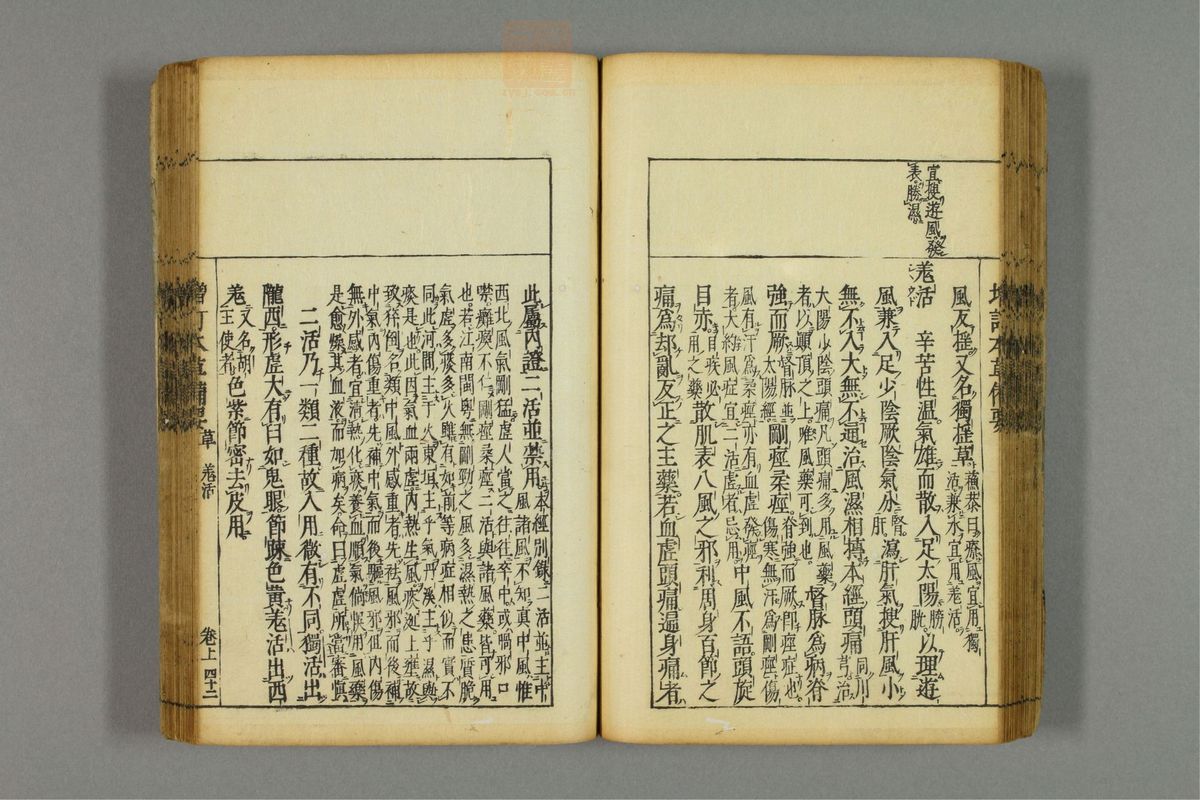 宜搜遊風發
表勝濕
風友獨又名獨搖草
藨恭曰療風宜用獨
活兼水宜用羌活
羌活
辛苦性温氣雄而散入足太陽膀胱以理遊
風兼入足少陰厥陰氣分腎肝瀉肝氣搜肝風小
無不入大無不通治風濕相搏本經頭痛同川芎治
太陽少陰頭痛凡頭痛多用風藥
者以巔頂之上唯風藥可到也
督脉為病脊
強而厥督脉並太陽經剛痓柔痓脊強而厥即痓症也傷寒無汗為剛痓傷
風有汗為柔痓亦有血虛發痓
者大約風症宜二活血虛忌用
中風不語頭旋
目赤目疾必用之藥散肌表八風之邪利周身百節之
痛為却亂反正之主藥若血虛頭痛遍身痛者
此屬內證二活並禁用
本經別錄二活並主中
風諸風不知真中風惟
西北風氣剛猛虛人當之往往卒中或喎邪口
噤癱瘓不仁剛痓柔痓二活與諸風藥皆可用
也若江南閩粵無剛勁之風多濕熱之患質脆
氣虛多痰多火雖有如前等病症相似而實不
同此河間主乎火東垣主乎氣丹溪主乎濕與
痰是也此因氣血兩虛內熱生風痰逆上壅故
致猝倒名類中風外感重者先祛風邪而後補
中氣內傷重者先補中氣而後驅風邪但內傷
無外感者宜清熱化痰養血順氣倘悞用風藥
是愈燥其血液而加病矣命曰虛虛所當審慎
二活乃一類二種故入用微有不同獨活出
隴西形虛大有臼如鬼眼節踈色黄羌活出西
羌又名胡王使者色紫節密去皮用
增訂本草備要
草 羌活
卷上 四十二